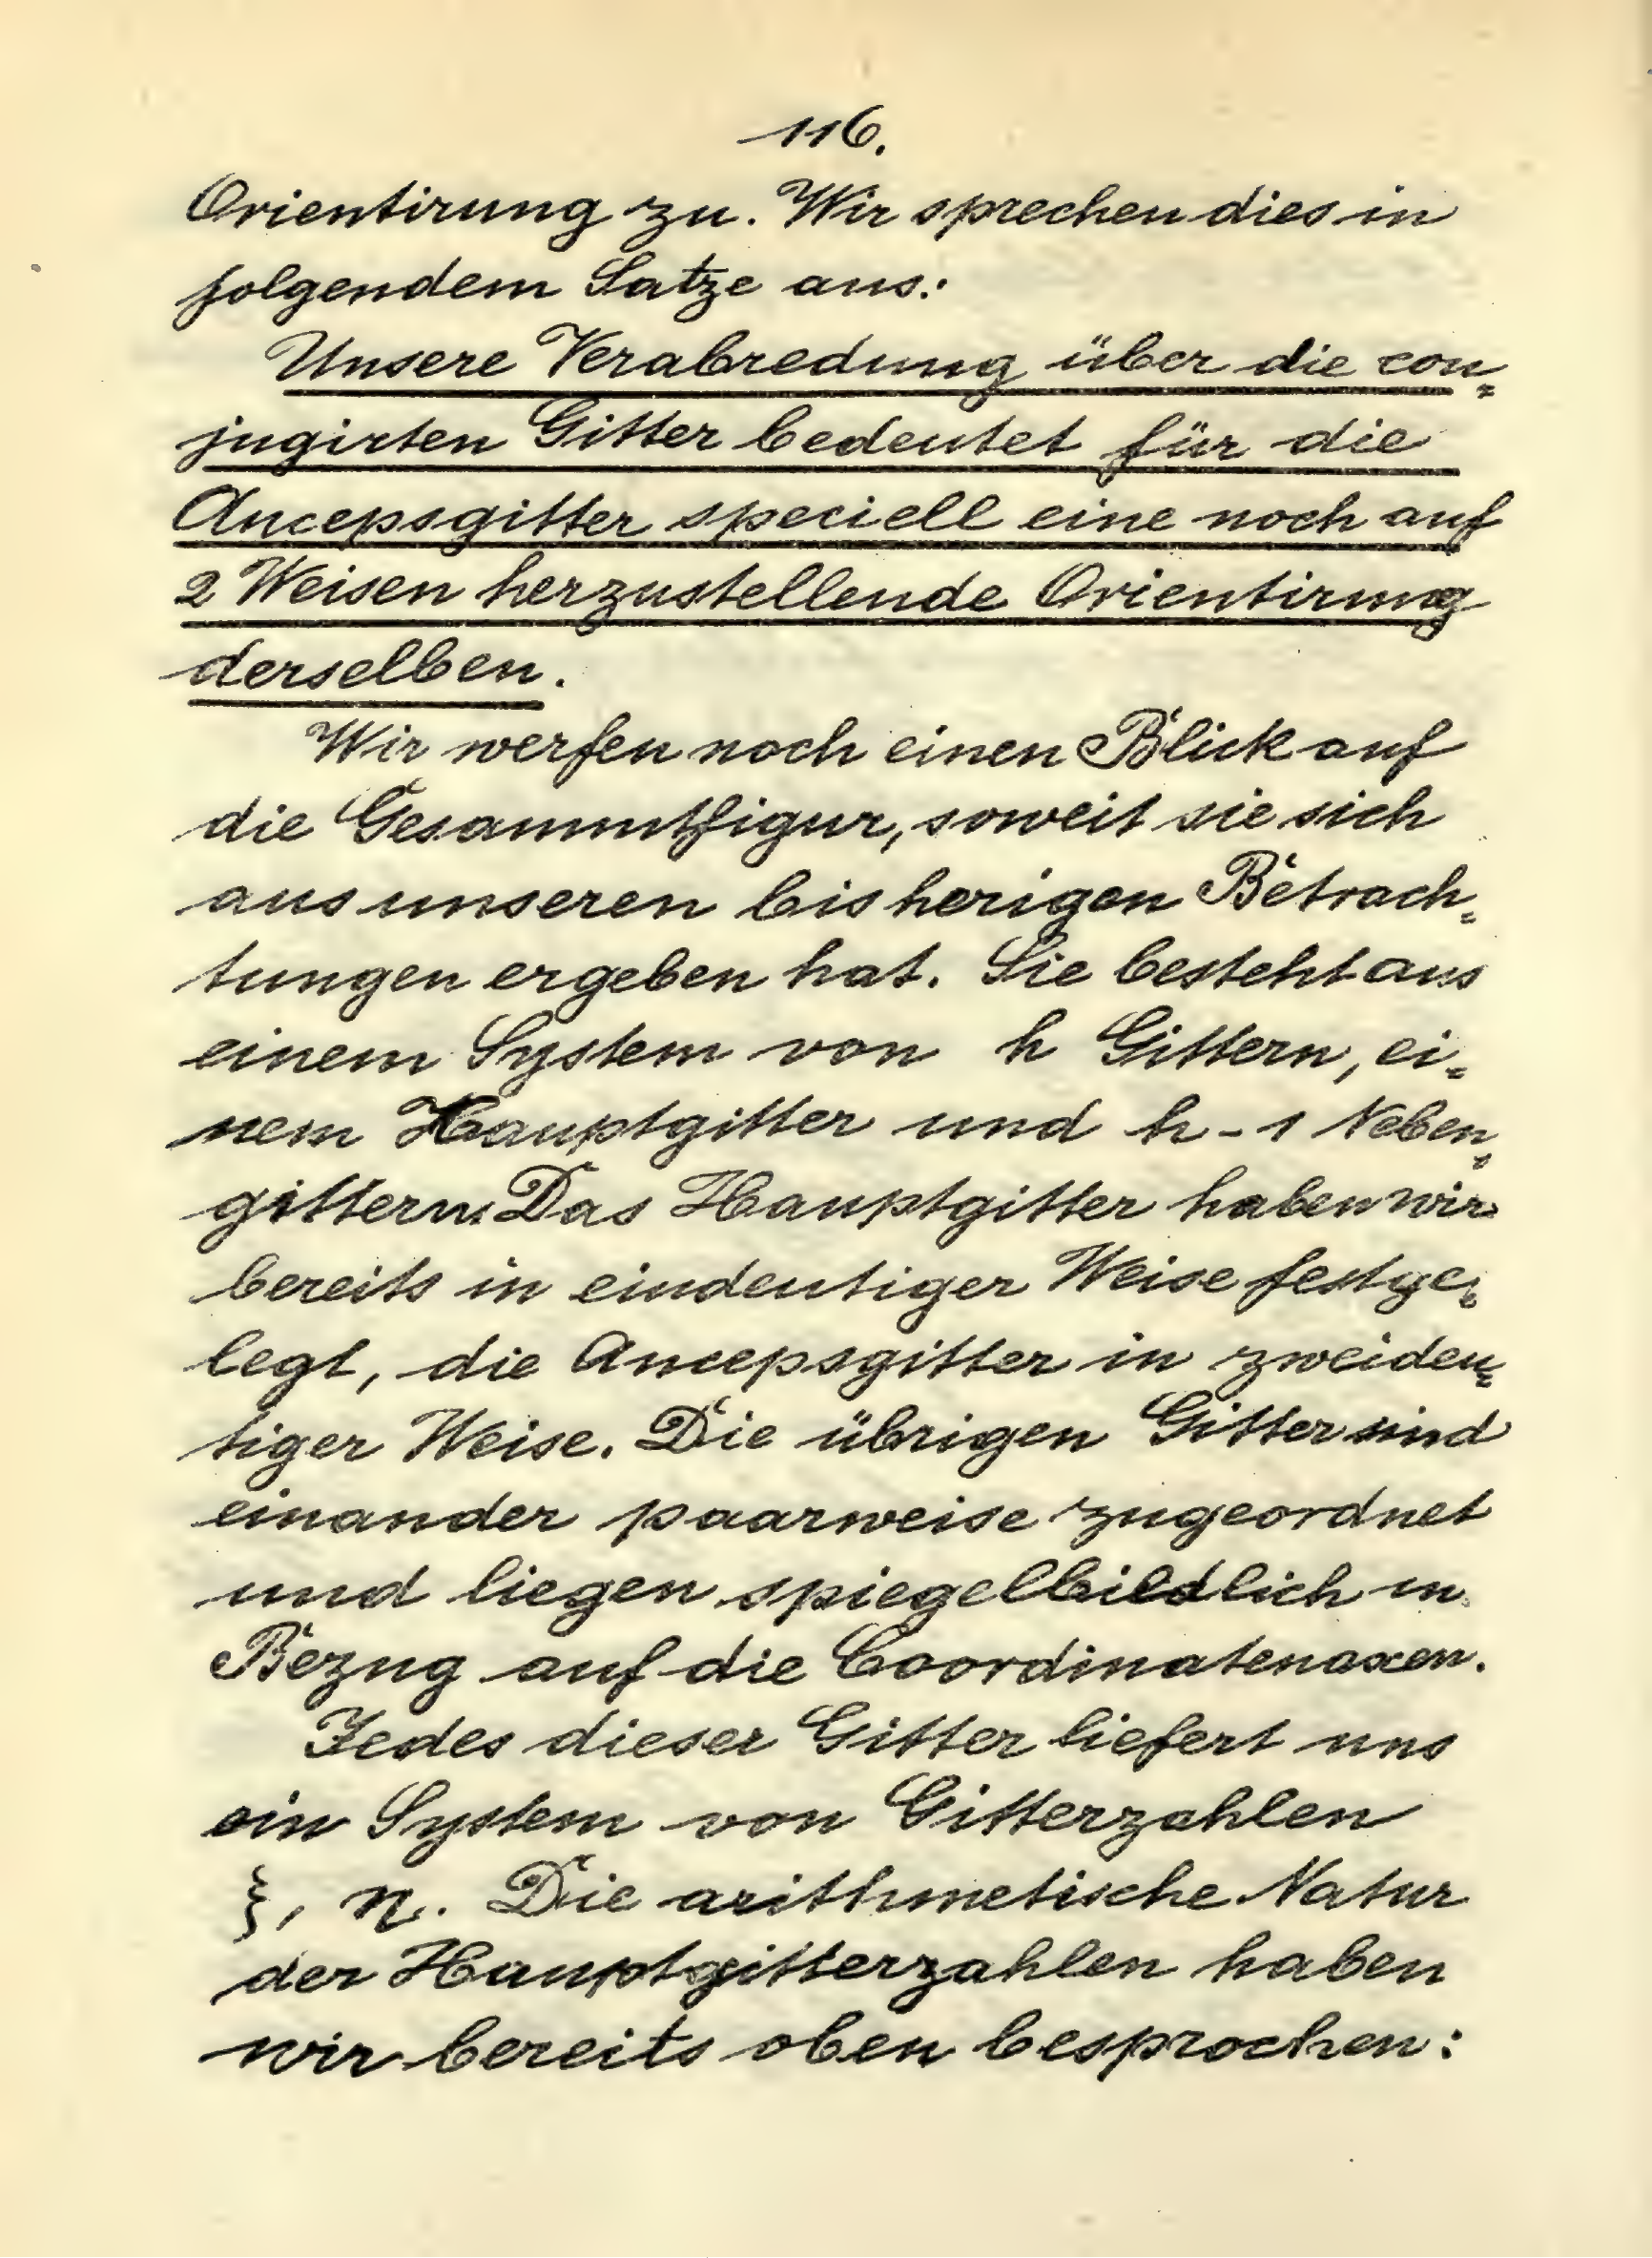 116.
Orientirung zu. Wir sprechen dies in
folgendem Satze aus:
Unsere Verabredung über die con=
jugirten Gitter bedeutet für die
Ancepsgitter speciell eine noch auf
2 Weisen herzustellende Orientirung
derselben.
Wir werfen noch einen Blick auf
die Gesammtfigur, soweit sie sich
aus unseren bisherigen Betrach=
tungen ergeben hat. Sie besteht aus
einem System von h Gittern, ei=
nem Hauptgitter und h-1 Neben=
gittern. Das Hauptgitter haben wir
bereits in eindeutiger Weise festge=
legt, die Ancepsgitter in zweideu=
tiger Weise. Die übrigen Gitter sind
einander paarweise zugeordnet
und liegen spiegelbildlich in
Bezug auf die Coordinatenaxen.
Jedes dieser Gitter liefert uns
ein System von Gitterzahlen
ξ, η. Die arithmetische Natur
der Hauptgitterzahlen haben
wir bereits oben besprochen: